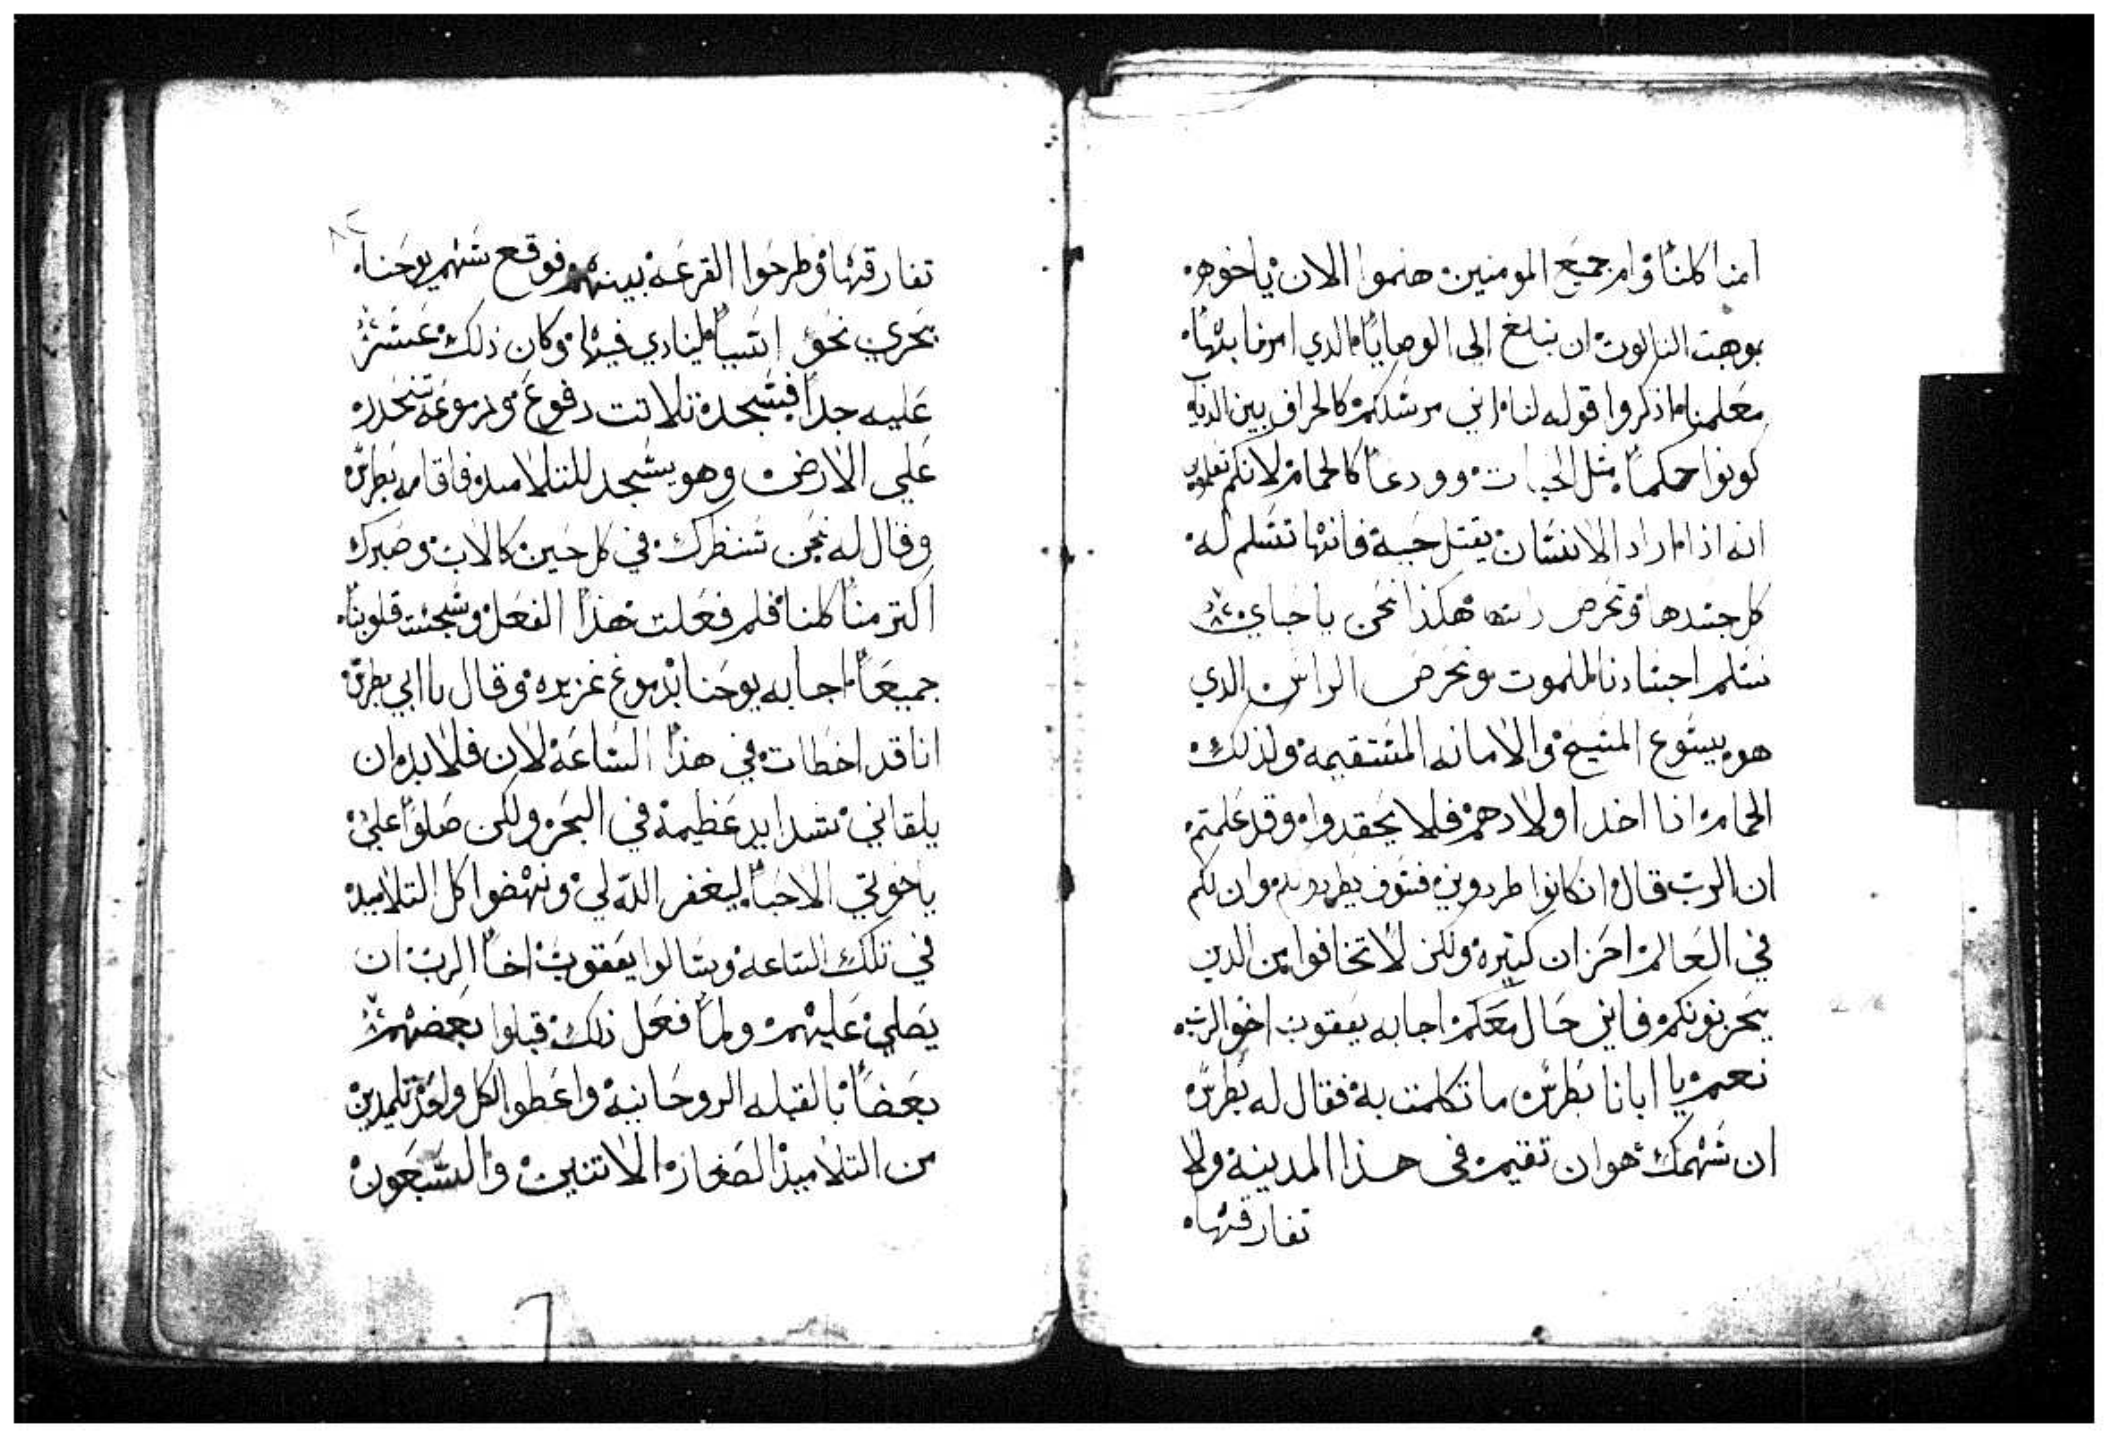 امنا كلنا وام جميع المومنين هلموا الان ياخوه
بوهبت التالوت ان نبلغ الى الوصايا الدي امرنا بها
معلمنا اذكروا قوله لنا اني مرسلكم كالخراف بين الدياب
كونوا حكما مثل الحيات وودعا كالحمام لانكم تعلمون
انه اذا اراد الانسان يقتل حية فانها تسلم له
كل جسدها وتحرص راسها هكذا نحن يا احباي
نسلم اجسادنا للموت ونحرص الراس الدي
هو يسوع المسيح والامانه المستقيمه ولذلك
الحمام اذا اخدا اولادهم فلا يحقدوا وقد علمتم
ان الرب قال ان كانوا طردوني فسوف يطردونكم وان لكم
في العالم احزان كتيره ولكن لا تخافوا من الدين
يحزنونكم فاني حال معكم اجابه يعقوب اخو الرب
نعم يا ابانا بطرس ما تكلمت به فقال له بطرس
ان سهمك هو ان تقيم في هذا المدينة ولا
تفارقها
٨٢
تفارقها وطرحوا القرعة بينهم فوقع سهم يوحنا
يجري نحو اسيا لينادي فيها وكان ذلك عسر
عليه جدا فسجد تلاتت دفوع ودموعه تنحدر
علي الارض وهو يسجد للتلاميد فاقامه بطرس
وقال له نحن ننظرك في كل حين كالاب وصبرك
اكتر منا كلنا فلم فعلت هذا الفعل وسجست قلوبنا
جميعا اجابه يوحنا بدموع غزيره وقال يا ابي بطرس
انا قد اخطات في هذا الساعة لان فلا بد ان
يلقاني شدايد عظيمة في البحر ولكن صلوا علي
ياخوتي الاحبا ليغفر الله لي ونهضوا كل التلاميد
في تلك الساعة وسالوا يعقوب اخا الرب ان
يصلي عليهم ولما فعل ذلك قبلوا بعضهم
بعضا بالقبله الروحانية واعطوا لكل واحد تلميدين
من التلاميذ الصغار الاتنين والسبعون